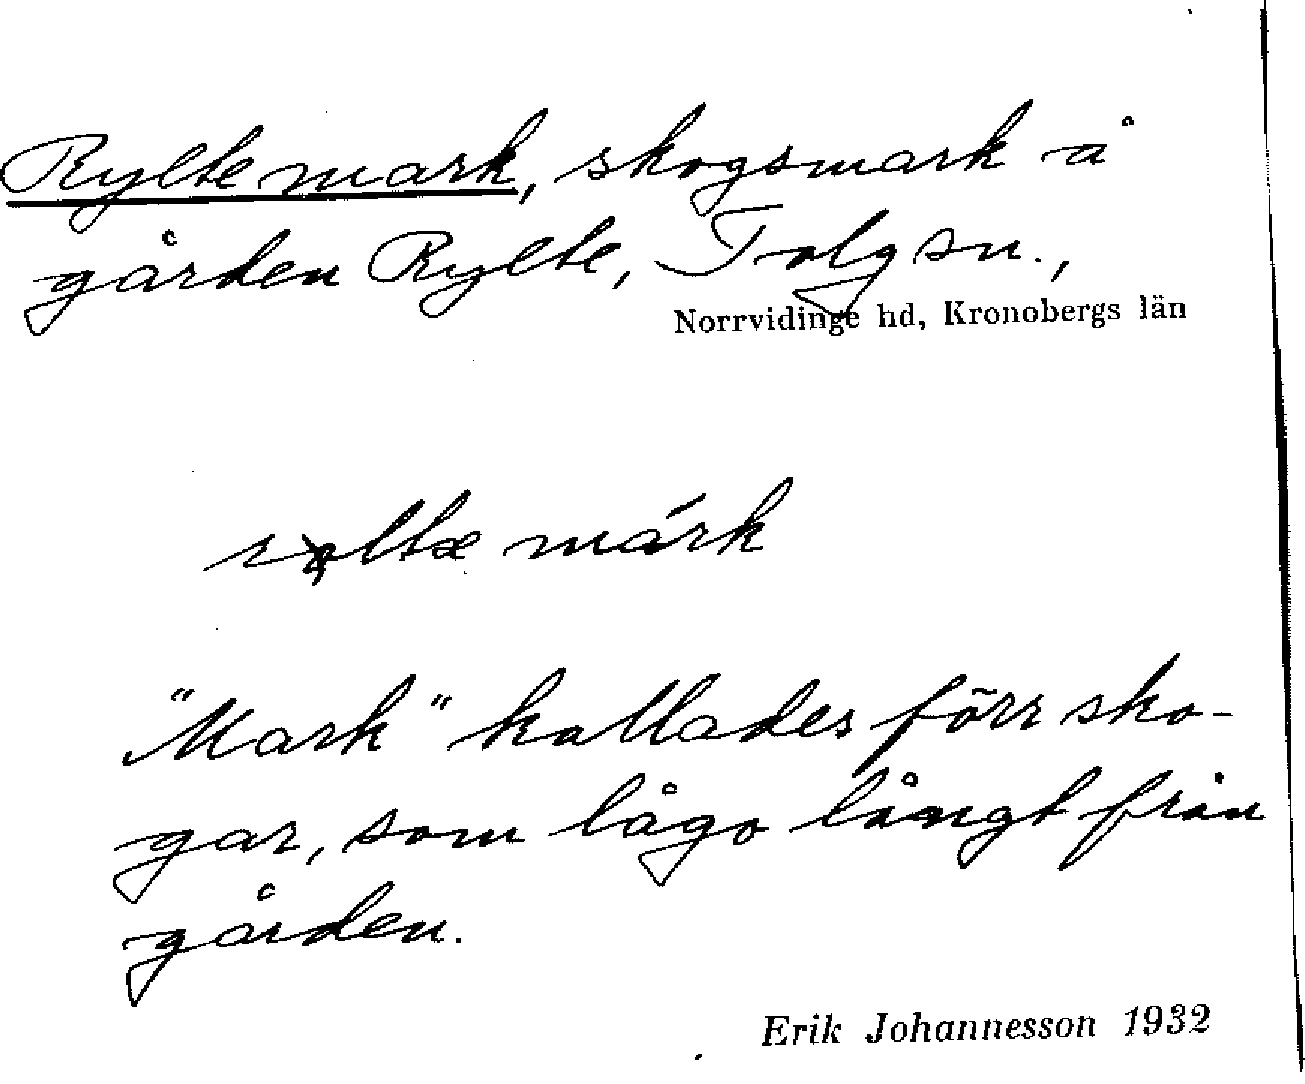 Ryltemark, skogsmark å
gården Rylte, Tolg sn.,
Norrvidinge hd, Kronobergs län
märk
"Mark" kallades förr sko-
gar, som lågo långt från
gården.
Erik Johannesson 1932